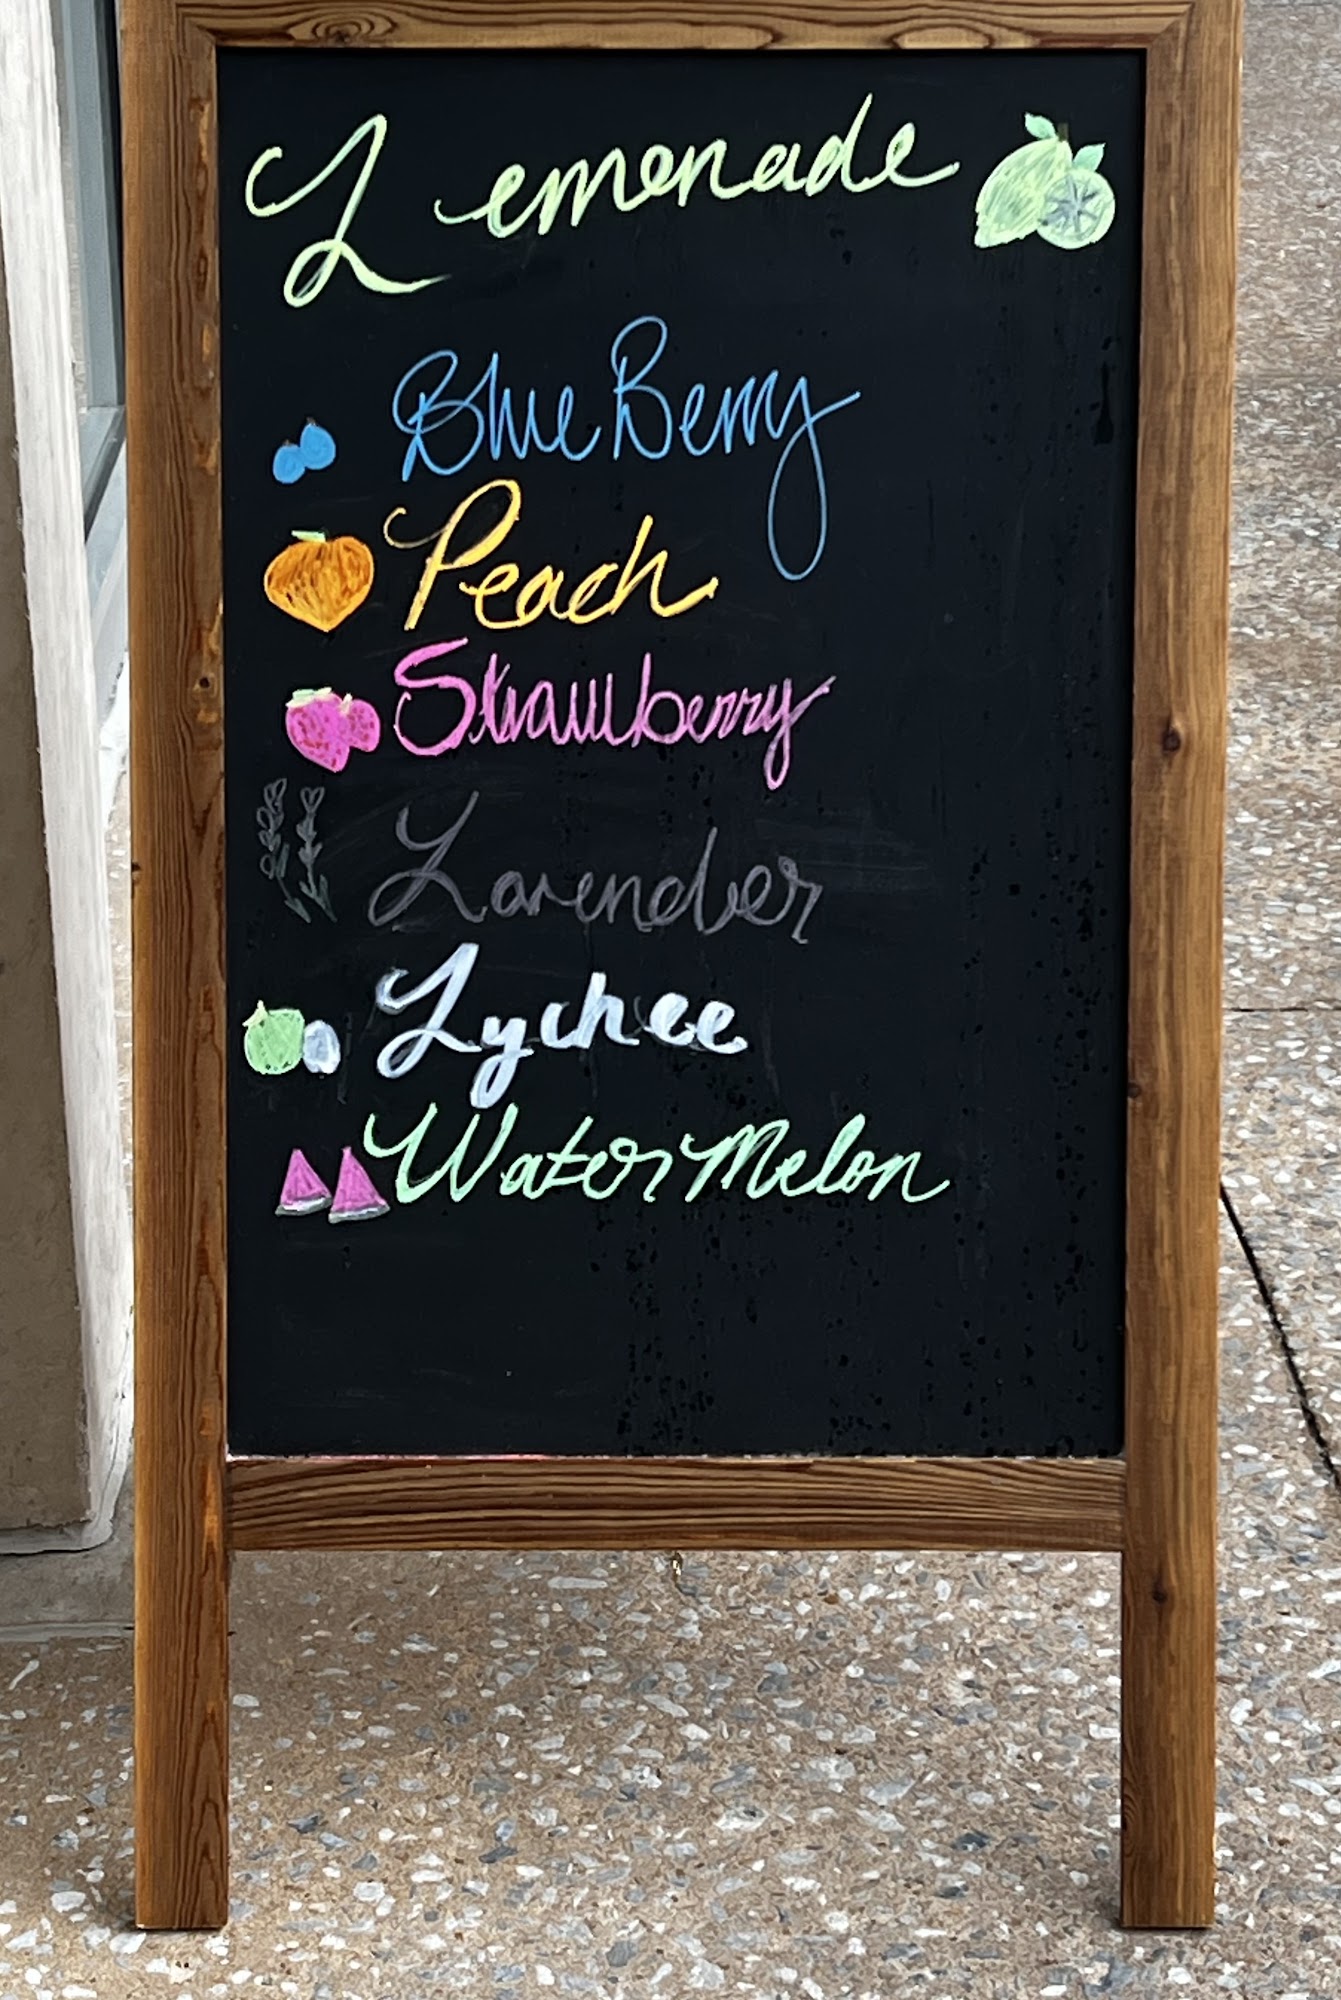 Lemonade
Blue Berry
Peach
Strawberry
Lavender
Lychee
Water Melon